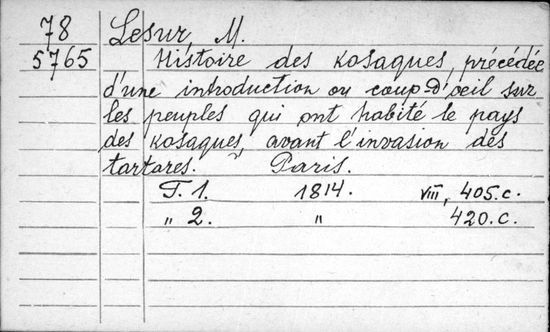 78 Lesur, M.
5765 Histoire des kosaques, précédée
d'une introduction ou coup d'oeil sur
les peuples qui ont habité le pays
des kosaques, avant l'invasion des
tartares. Paris.
T. 1. 1814. VIII, 405.c.
" 2. " 420.c.